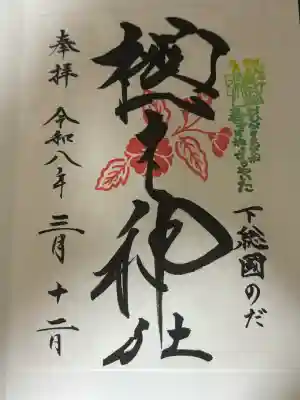 下総國のだ
櫻木神社
奉拝 令和八年 三月十二日